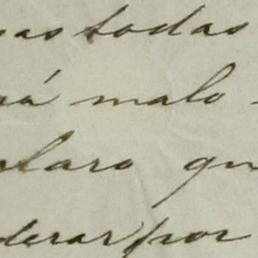 as todas
rá malo -
claro qu
derar por